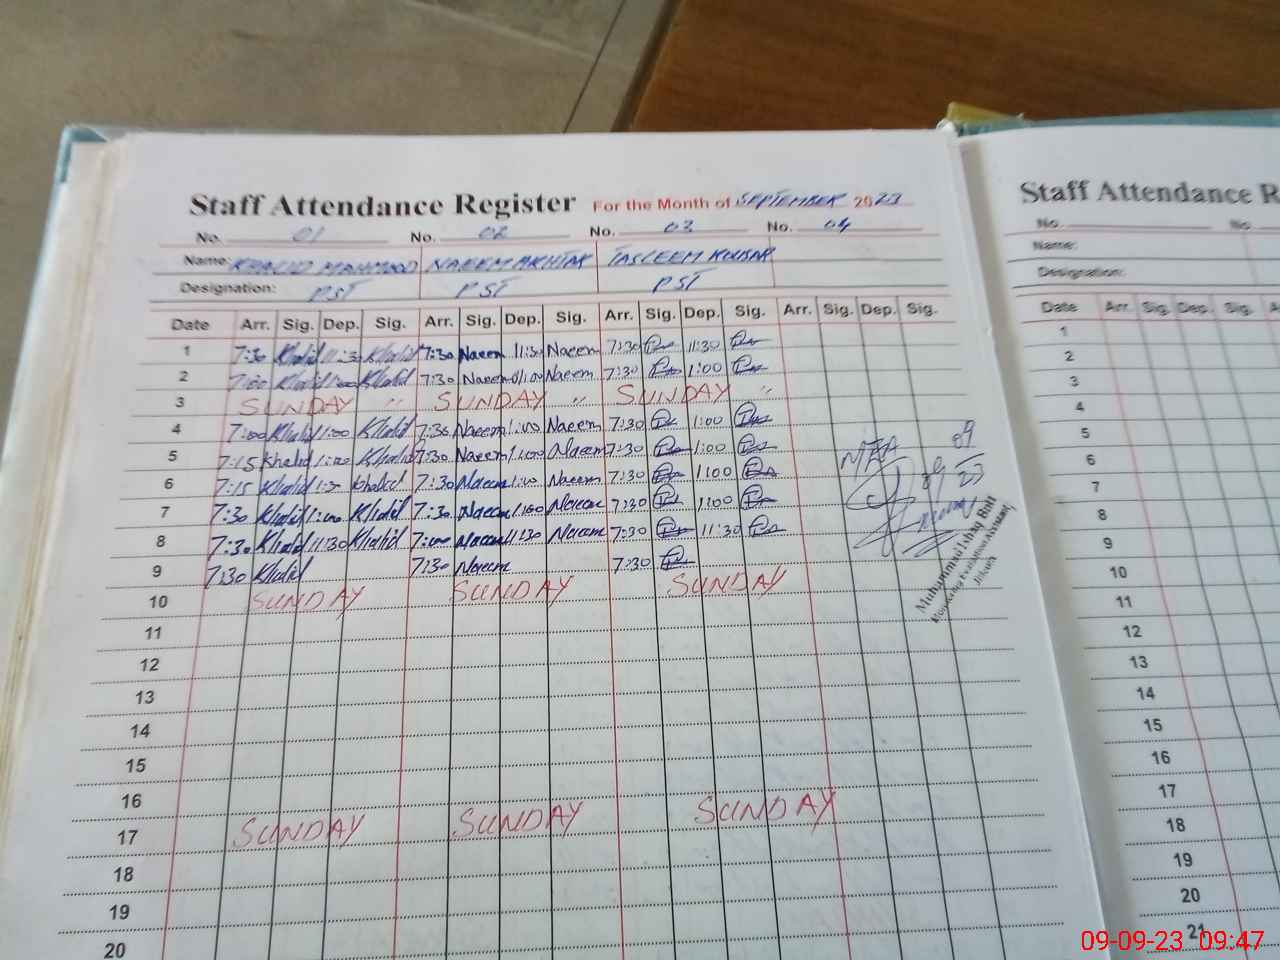 Staff Attendance Register For the Month of SEPTEMBER 2023
No. 01 No. 02 No. 03 No. 04
Name: KHALID MAHMOOD NAEEM AKHTAR TASLEEM KOUSAR
Designation: PST PST PST
Date Arr. Sig. Dep. Sig. Arr. Sig. Dep. Sig. Arr. Sig. Dep. Sig. Arr. Sig. Dep. Sig.
1 7:30 Khalid 11:30 Khalid 7:30 Naeem 11:30 Naeem 7:30 11:30
2 7:00 Khalid 1:00 Khalid 7:30 Naeem 01:00 Naeem 7:30 1:00
3 SUNDAY " SUNDAY " SUNDAY "
4 7:00 Khalid 1:00 Khalid 7:30 Naeem 1:00 Naeem 7:30 1:00
5 7:15 Khalid 1:00 Khalid 7:30 Naeem 1:00 Naeem 7:30 1:00
6 7:15 Khalid Khalid 7:30 Naeem 1:00 Naeem 7:30 1:00
7 7:30 Khalid 1:00 Khalid 7:30 Naeem 1:00 Naeem 7:30 1:00
8 7:30 Khalid 11:30 Khalid 7:00 Naeem 11:30 Naeem 7:30 11:30
9 7:30 Khalid 7:30 Naeem 7:30
10 SUNDAY SUNDAY SUNDAY
11
12
13
14
15
16
17 SUNDAY SUNDAY SUNDAY
18
19
20
MEA
09
09 23
Muhammad Ishaq Butt
Monitoring Evaluation Assistant
Jhelum
Staff Attendance R
No. No.
Name:
Designation:
Date Arr. Sig. Dep. Sig.
1
2
3
4
5
6
7
8
9
10
11
12
13
14
15
16
17
18
19
20
21
09-09-23 09:47